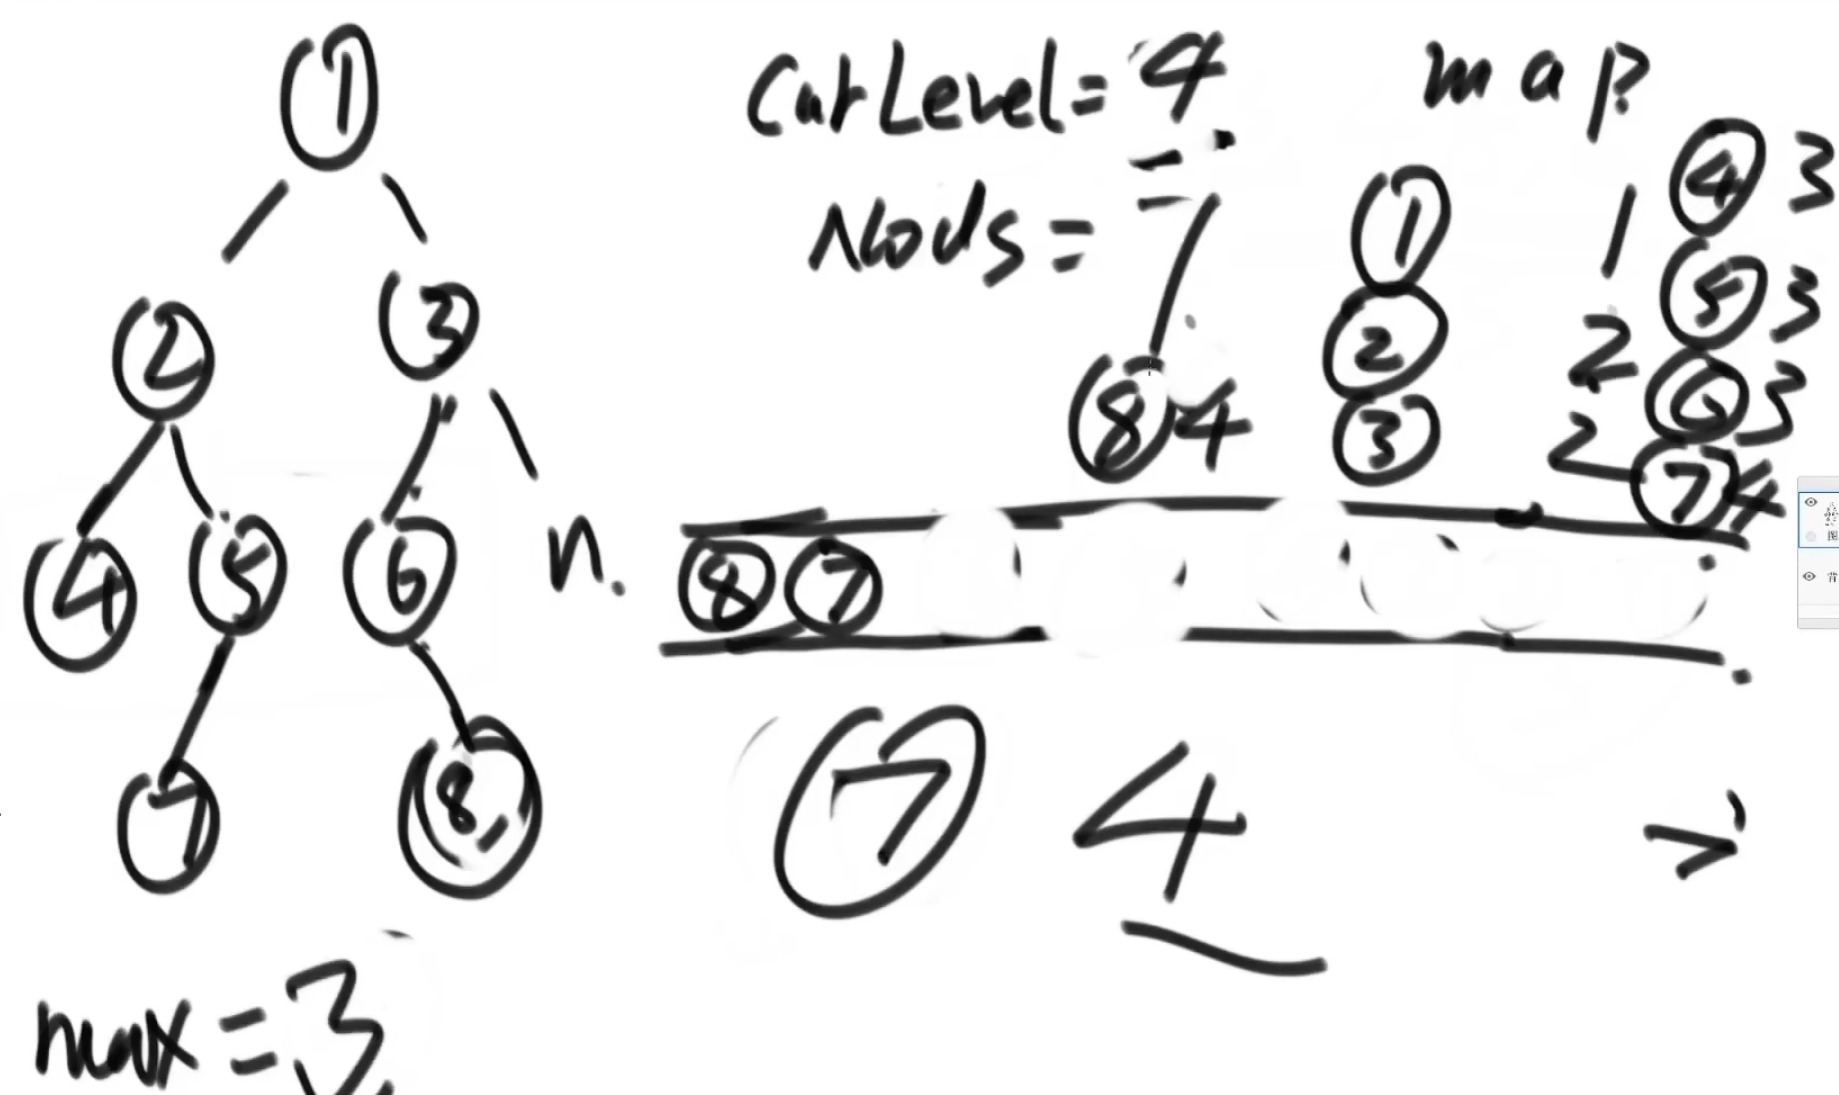 1
2 3
4 5 6 n.
7 8
max = 3
CurLevel = 4
Nods = 1
map
1 1
2 2
3 2
4 3
5 3
6 3
7 4
8 4
8 7
7 4
图
背